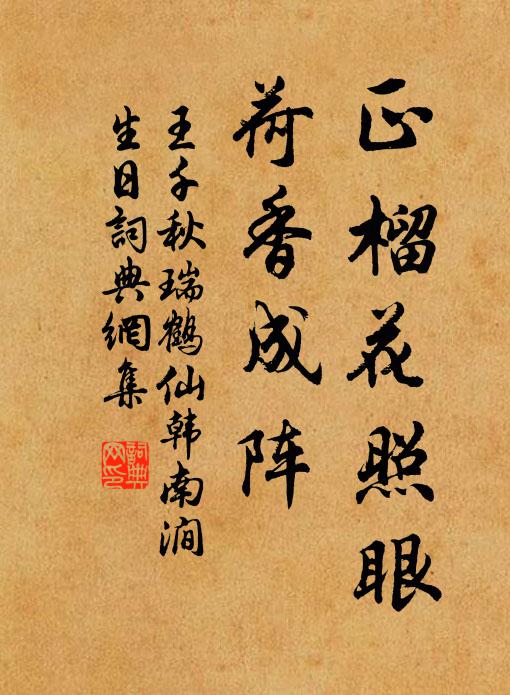 正榴花照眼
荷香成阵
王千秋瑞鹤仙韩南涧
生日詞典網集
詞典
网印